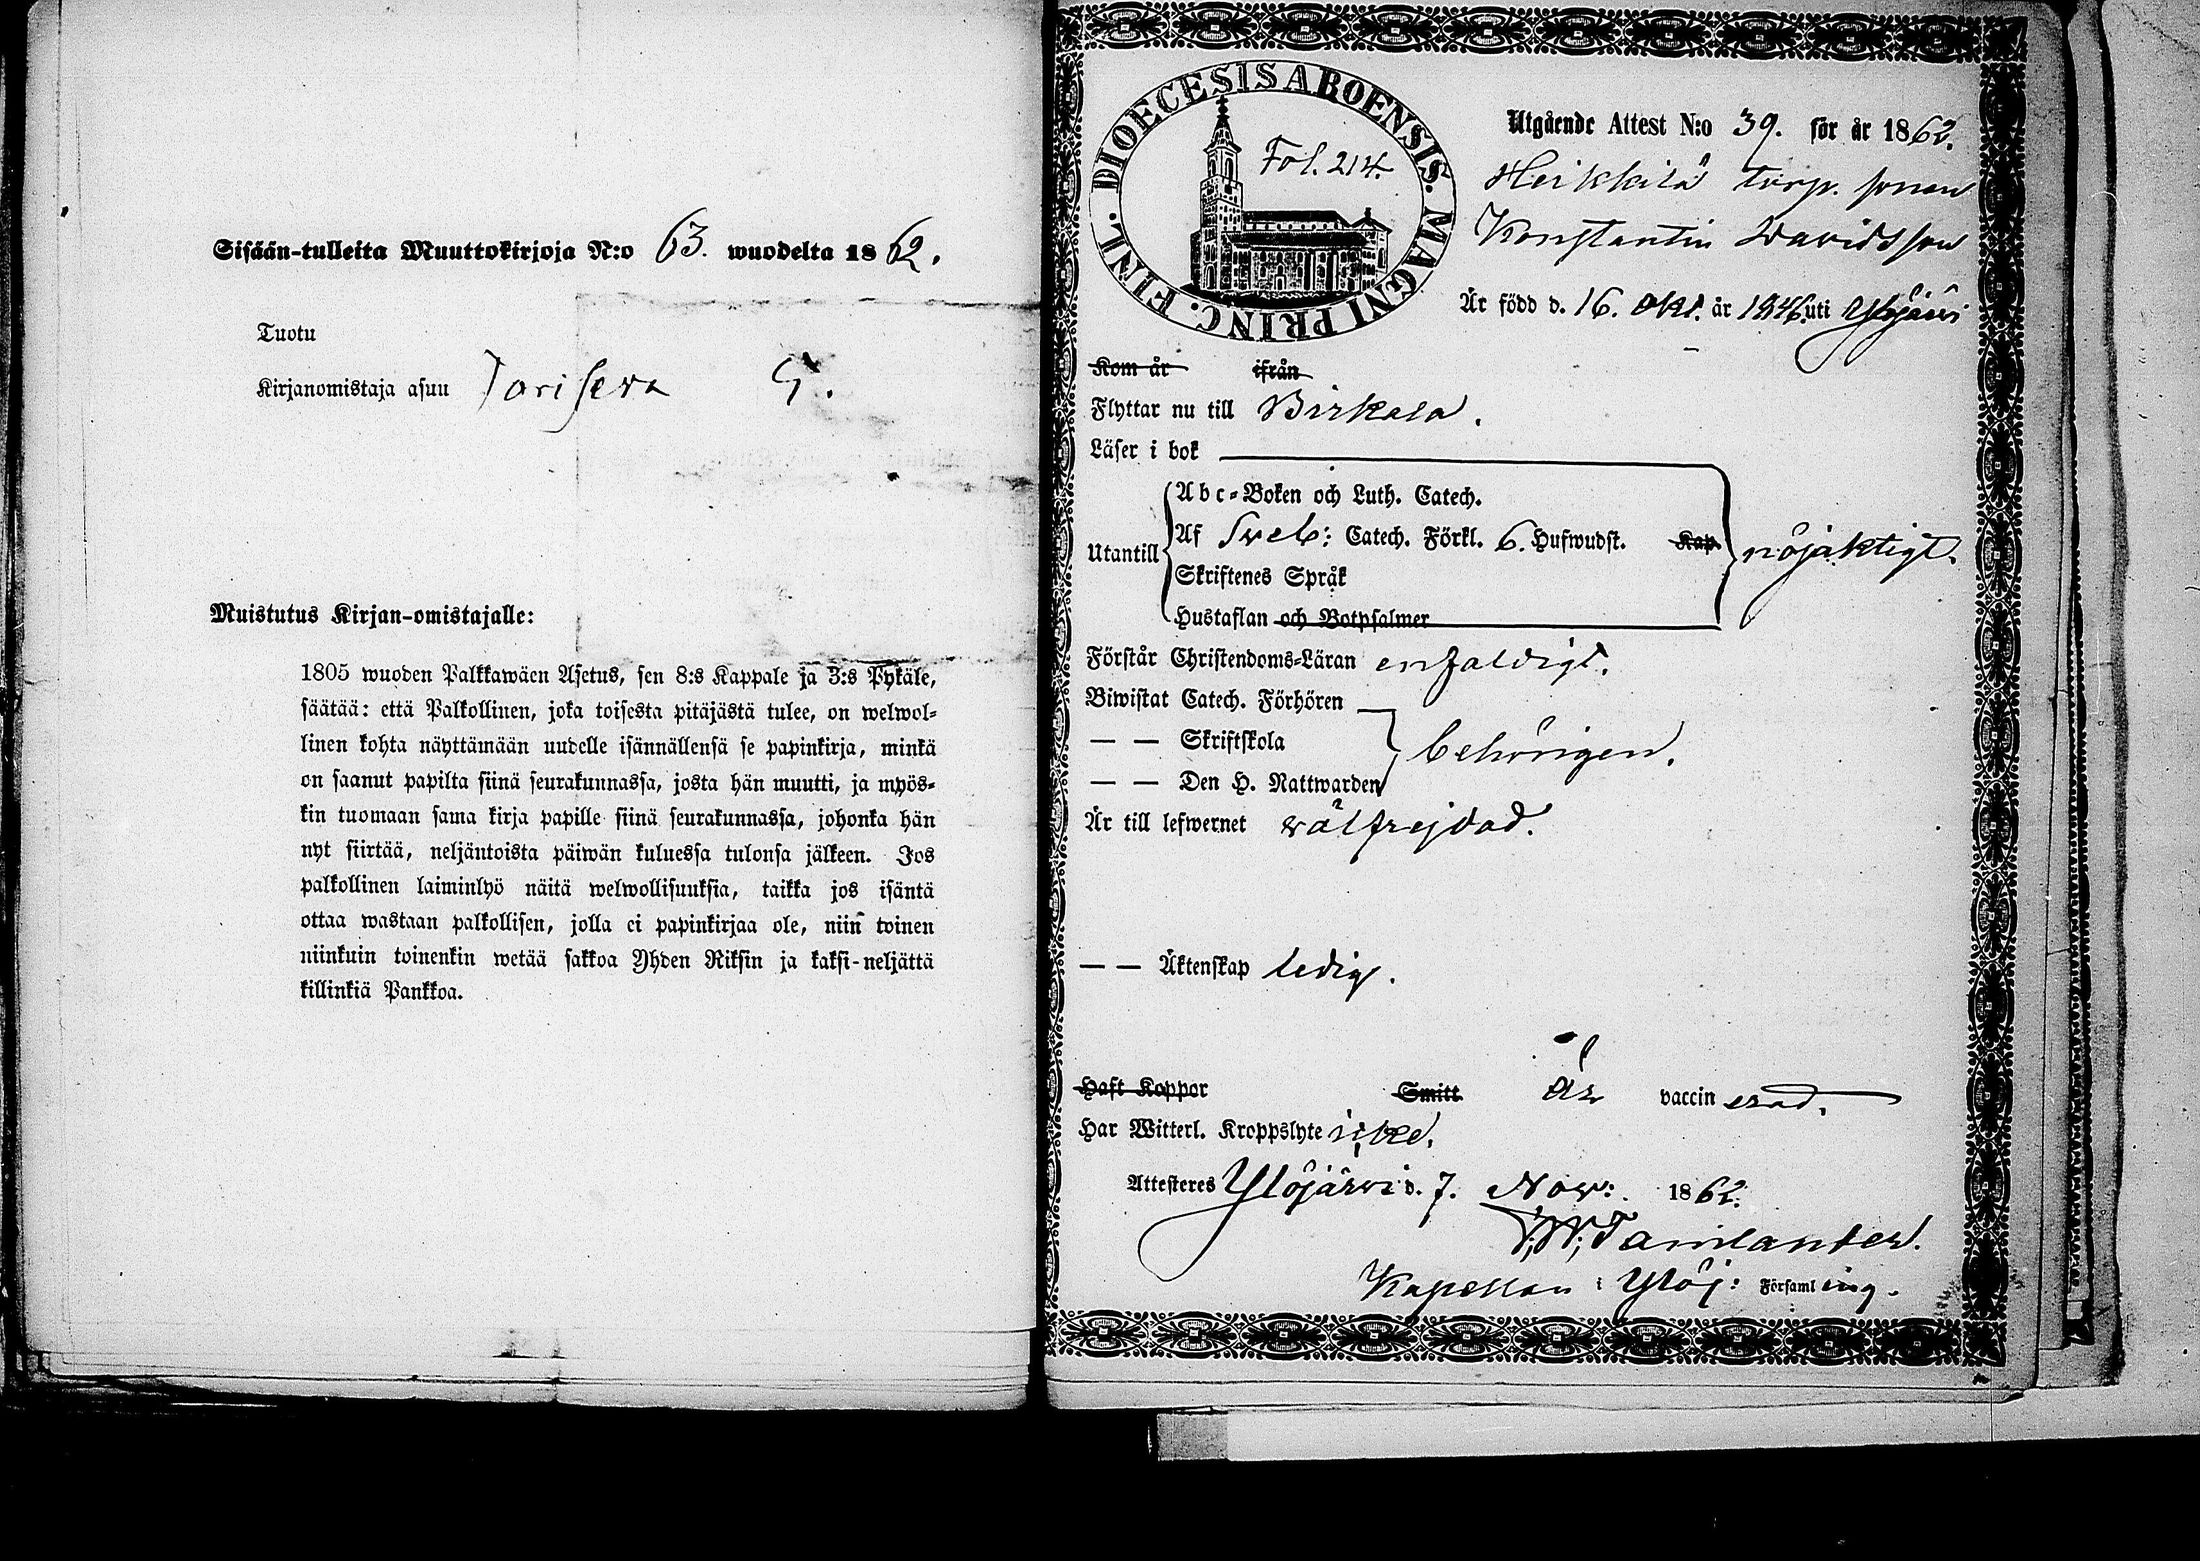 Sisään-tulleita Muuttokirjoja N:o 63. wuodelta 1862.
Tuotu
Kirjanomistaja asuu
Muistutus Kirjan-omistajalle:
1805 wuoden Palkkawäen Asetus, sen 8:s Kappale ja 3:s Pykäle,
säätää: että Palkollinen, joka toisesta pitäjästä tulee, on welwol-
linen kohta näyttämään uudelle isännällensä se papinkirja, minkä
on saanut papilta siinä seurakunnassa, josta hän muutti, ja myös-
kin tuomaan sama kirja papille siinä seurakunnassa, johonka hän
nyt siirtää, neljäntoista päiwän kuluessa tulonsa jälkeen. Jos
palkollinen laiminlyö näitä welwollisuuksia, taikka jos isäntä
ottaa wastaan palkollisen, jolla ei papinkirjaa ole, niin toinen
niinkuin toinenkin wetää sakkoa Yhden Riksin ja kaksi-neljättä
killinkiä Pankkoa.
DIOECESIS ABOENSIS. MAGNI PRINC. FINL.
Fol. 214.
Utgående Attest N:o 39. för år 1862.
Heikkilä torp. sonen
Konstantin Davidsson
Är född d. 16. Okt. år 1846. uti Ylöjärvi
Kom år ifrån
Flyttar nu till Birkala.
Läser i bok
Utantill
Abc-Boken och Luth. Catech.
Af Sveb: Catech. Förkl. 6. Hufwudst. Kap.
Skriftenes Språk
Hustaflan och Botpsalmer
nöjaktigt.
Förstår Christendoms-Läran enfaldigt.
Biwistat Catech. Förhören
— — Skriftskola
— — Den H. Nattwarden
behörigen.
Är till lefwernet välfrejdad.
— — Äktenskap ledig.
Haft Koppor Smitt är vaccinerad.
Har Witterl. Kroppslyte icke.
Attesteres Ylöjärvi d. 7. Nov: 1862.
Kapellan i Ylöj: Församling.